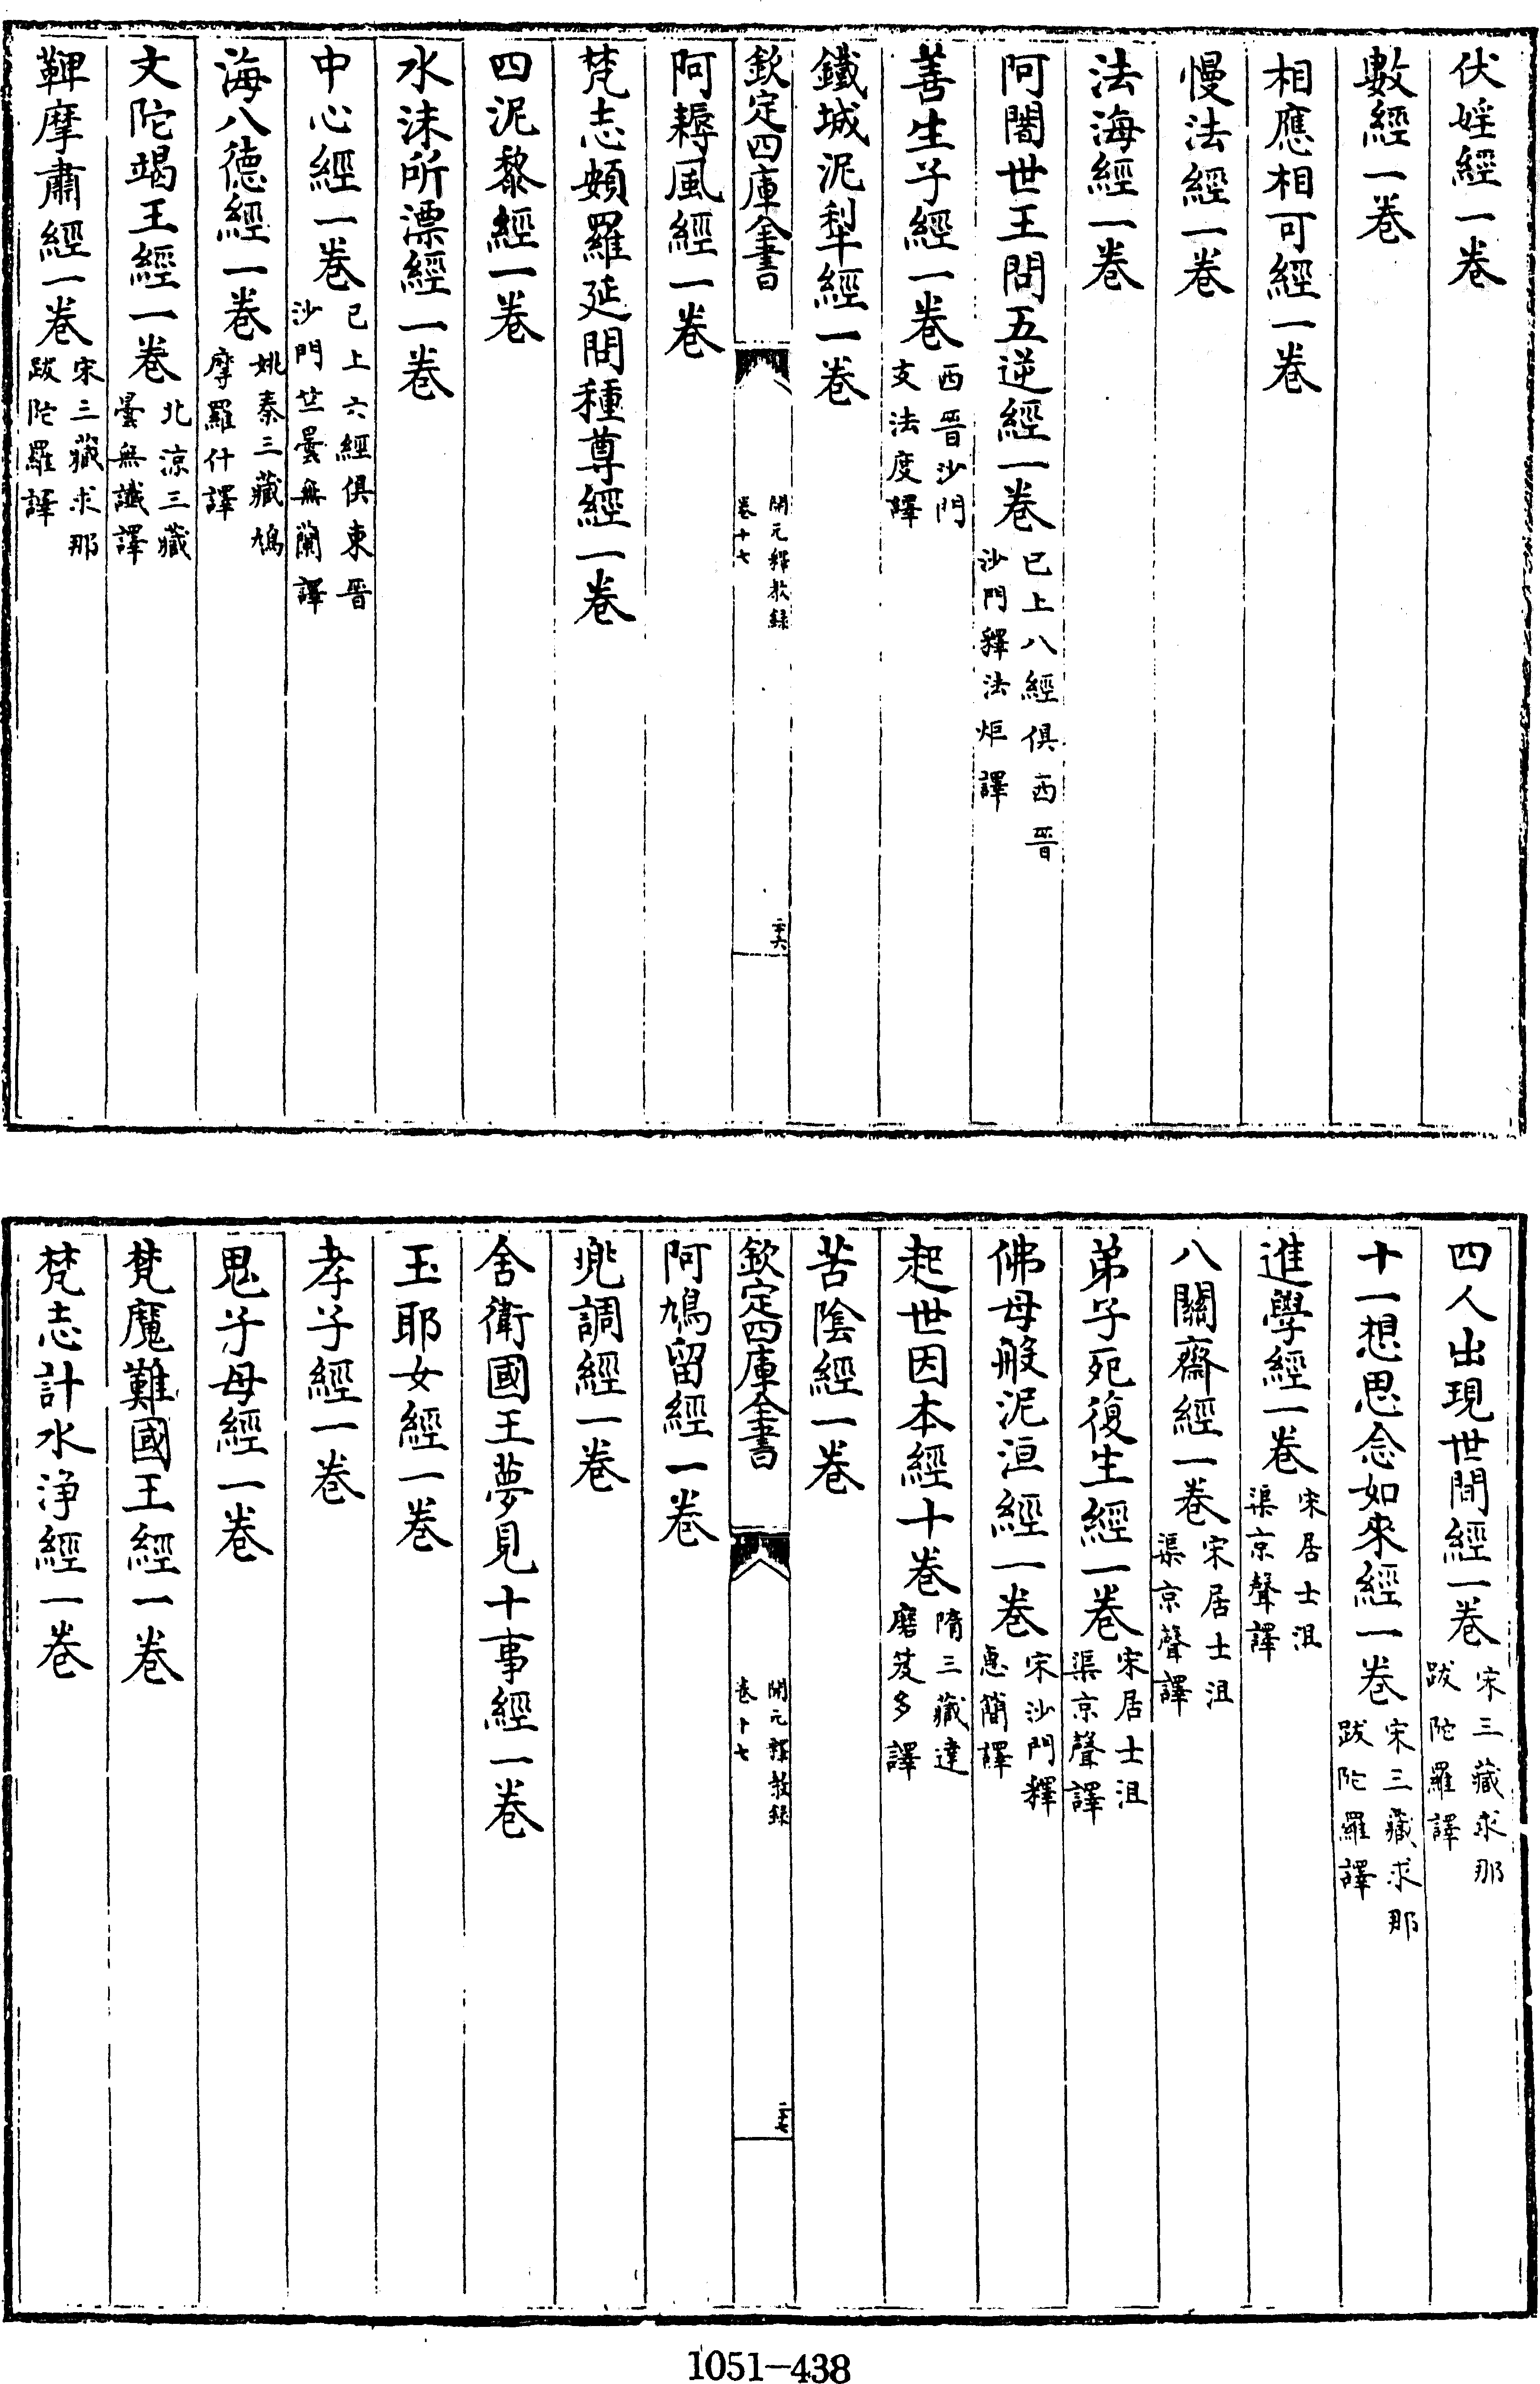 伏婬經一卷
數經一卷
相應相可經一卷
慢法經一卷
法海經一卷
阿闍世王問五逆經一卷已上八經俱西晉沙門釋法炬譯
善生子經一卷西晉沙門支法度譯
鐵城泥犁經一卷
欽定四庫全書 開元釋教錄卷十七 二十六
阿耨風經一卷
梵志頞羅延問種尊經一卷
四泥黎經一卷
水沫所漂經一卷
中心經一卷已上六經俱東晉沙門竺曇無蘭譯
海八德經一卷姚秦三藏鳩摩羅什譯
文陀竭王經一卷北涼三藏曇無讖譯
鞞摩肅經一卷宋三藏求那跋陀羅譯
四人出現世間經一卷宋三藏求那跋陀羅譯
十一想思念如來經一卷宋三藏求那跋陀羅譯
進學經一卷宋居士沮渠京聲譯
八關齋經一卷宋居士沮渠京聲譯
弟子死復生經一卷宋居士沮渠京聲譯
佛母般泥洹經一卷宋沙門釋惠簡譯
起世因本經十卷隋三藏達磨笈多譯
苦陰經一卷
欽定四庫全書 開元釋教錄卷十七 二十七
阿鳩留經一卷
兠調經一卷
舍衛國王夢見十事經一卷
玉耶女經一卷
孝子經一卷
鬼子母經一卷
梵魔難國王經一卷
梵志計水淨經一卷
1051-438